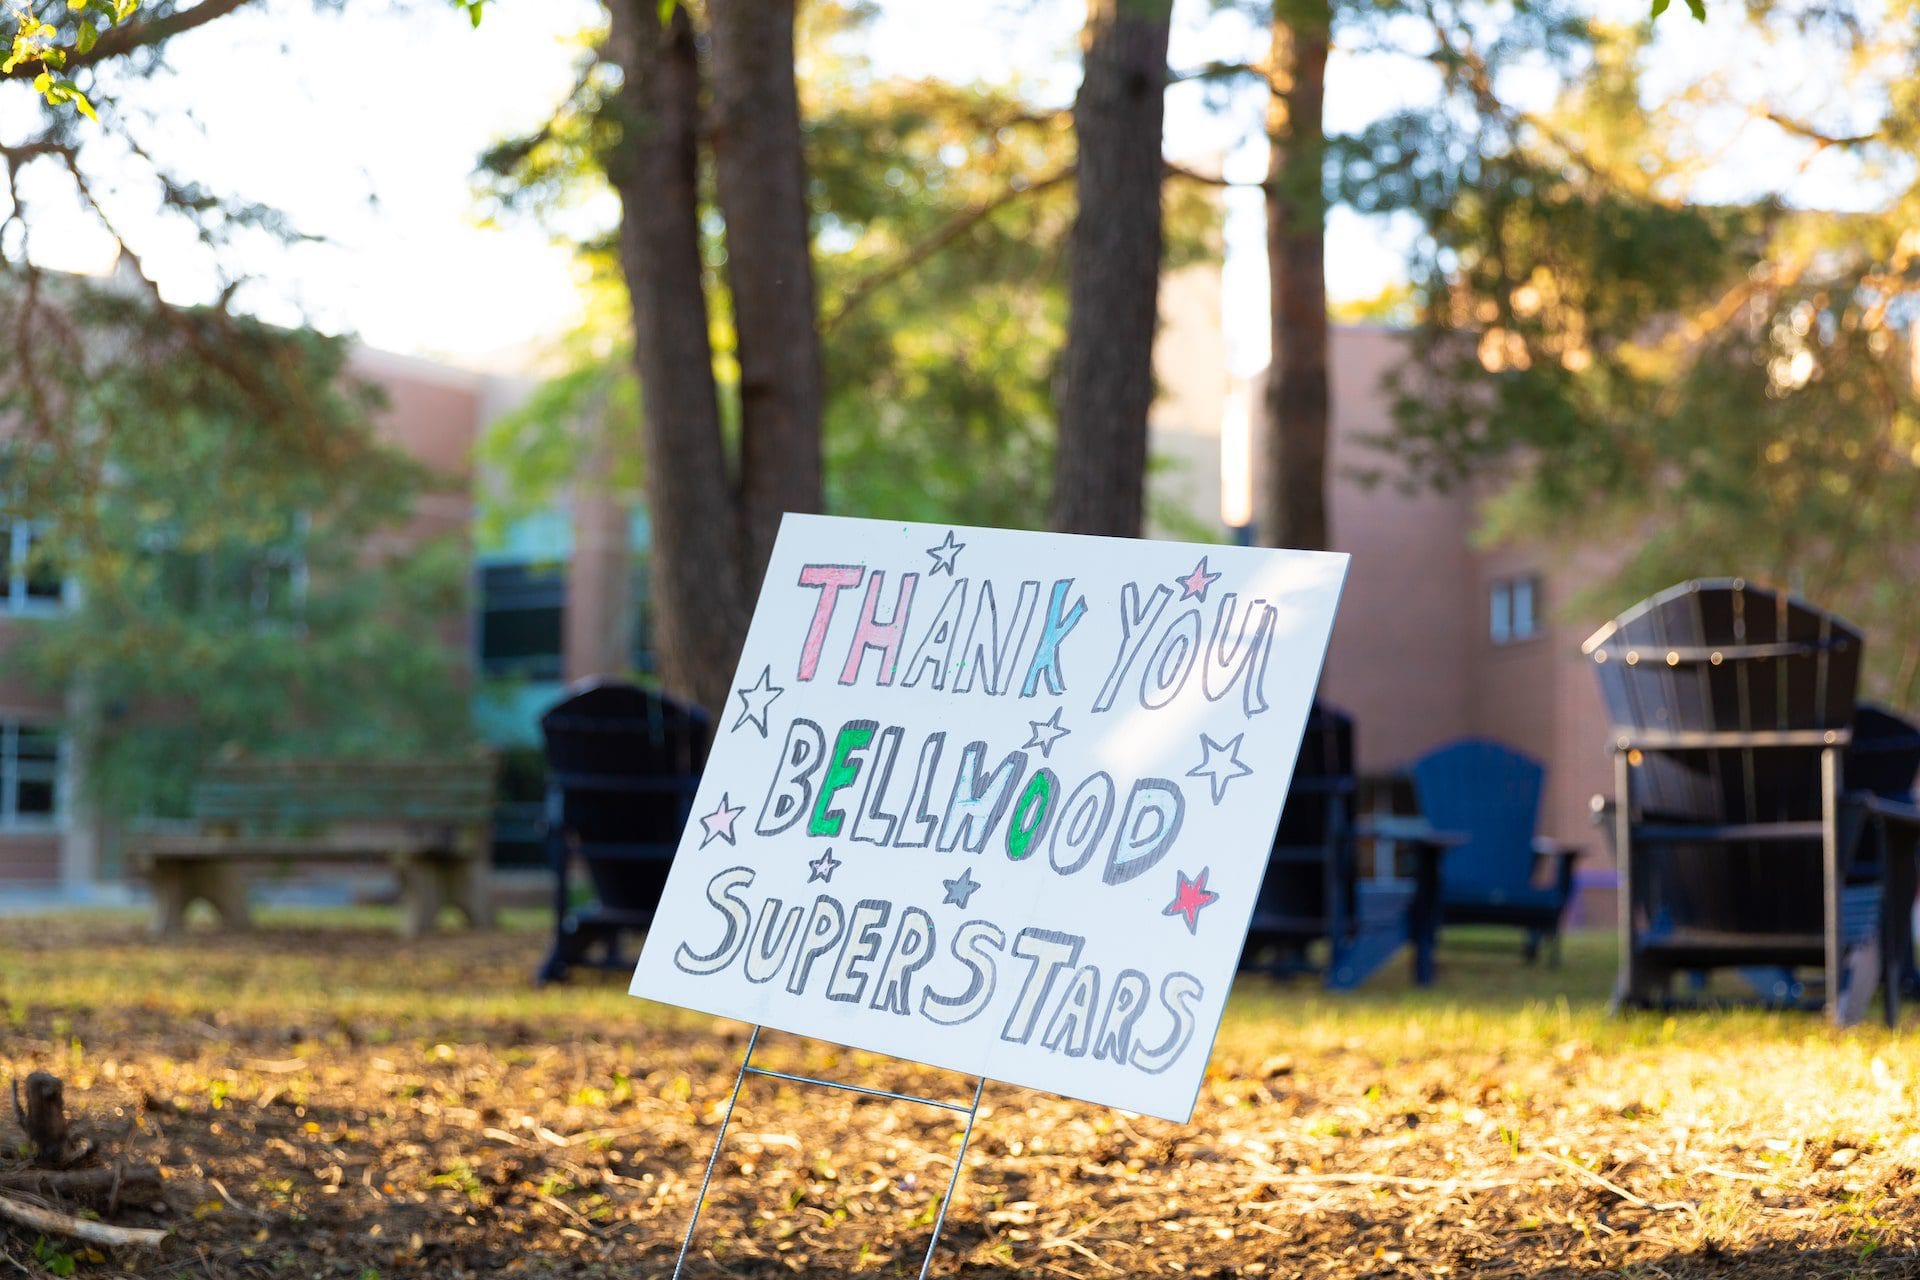 THANK YOU
BELLWOOD
SUPERSTARS